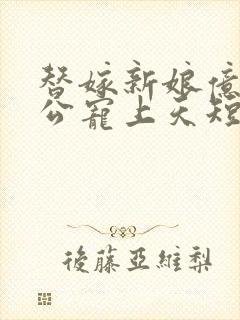 替嫁新娘億
公寵上天短
後藤亞維梨